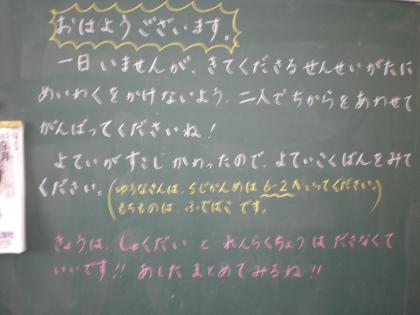 おはようございます。
一日いませんが、きてくださるせんせいがたに
めいわくをかけないよう、二人でちからをあわせて
がんばってくださいね!
よていがすこしかわったので、よていこくばんをみて
ください。(ゆうなさんは、5じかんめは6-2へいってください。
もちものは、ふでばこです。)
きょうは、しゅくだいとれんらくちょうはださなくて
いいです!!あしたまとめてみるね!!